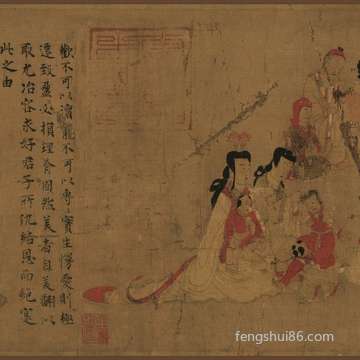 歡不可以瀆寵不可以專實生慢愛則極
遷致盈必損理有固然美者自美翩以
取尤冶容求好君子所仇結恩而絕寔
此之由
fengshui86.com